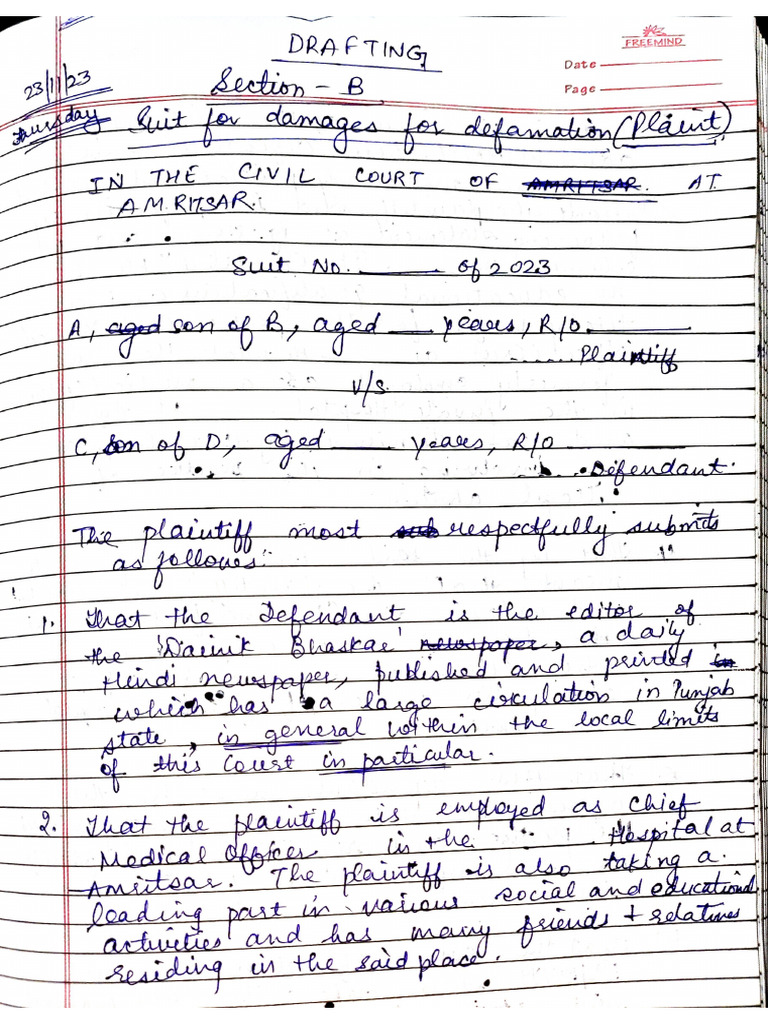 DRAFTING
FREEMIND
Date
Page
23/11/23
Thursday
Section - B
Suit for damages for defamation (Plaint)
IN THE CIVIL COURT OF AMRITSAR. AT
AMRITSAR.
Suit No. ______ of 2023
A, aged son of B, aged ___ years, R/O ______
...... Plaintiff
V/S.
C, son of D, aged ____ years, R/O ______
... Defendant.
The plaintiff most sub respectfully submits
as follows:
1. That the Defendant is the editor of
the 'Dainik Bhaskar' newspaper, a daily
Hindi newspaper, published and printed in
which has a large circulation in Punjab
state, in general within the local limits
of this Court in particular.
2. That the plaintiff is employed as Chief
Medical Officer in the Hospital at
Amritsar. The plaintiff is also taking a
leading part in various social and educational
activities and has many friends + relatives
residing in the said place.